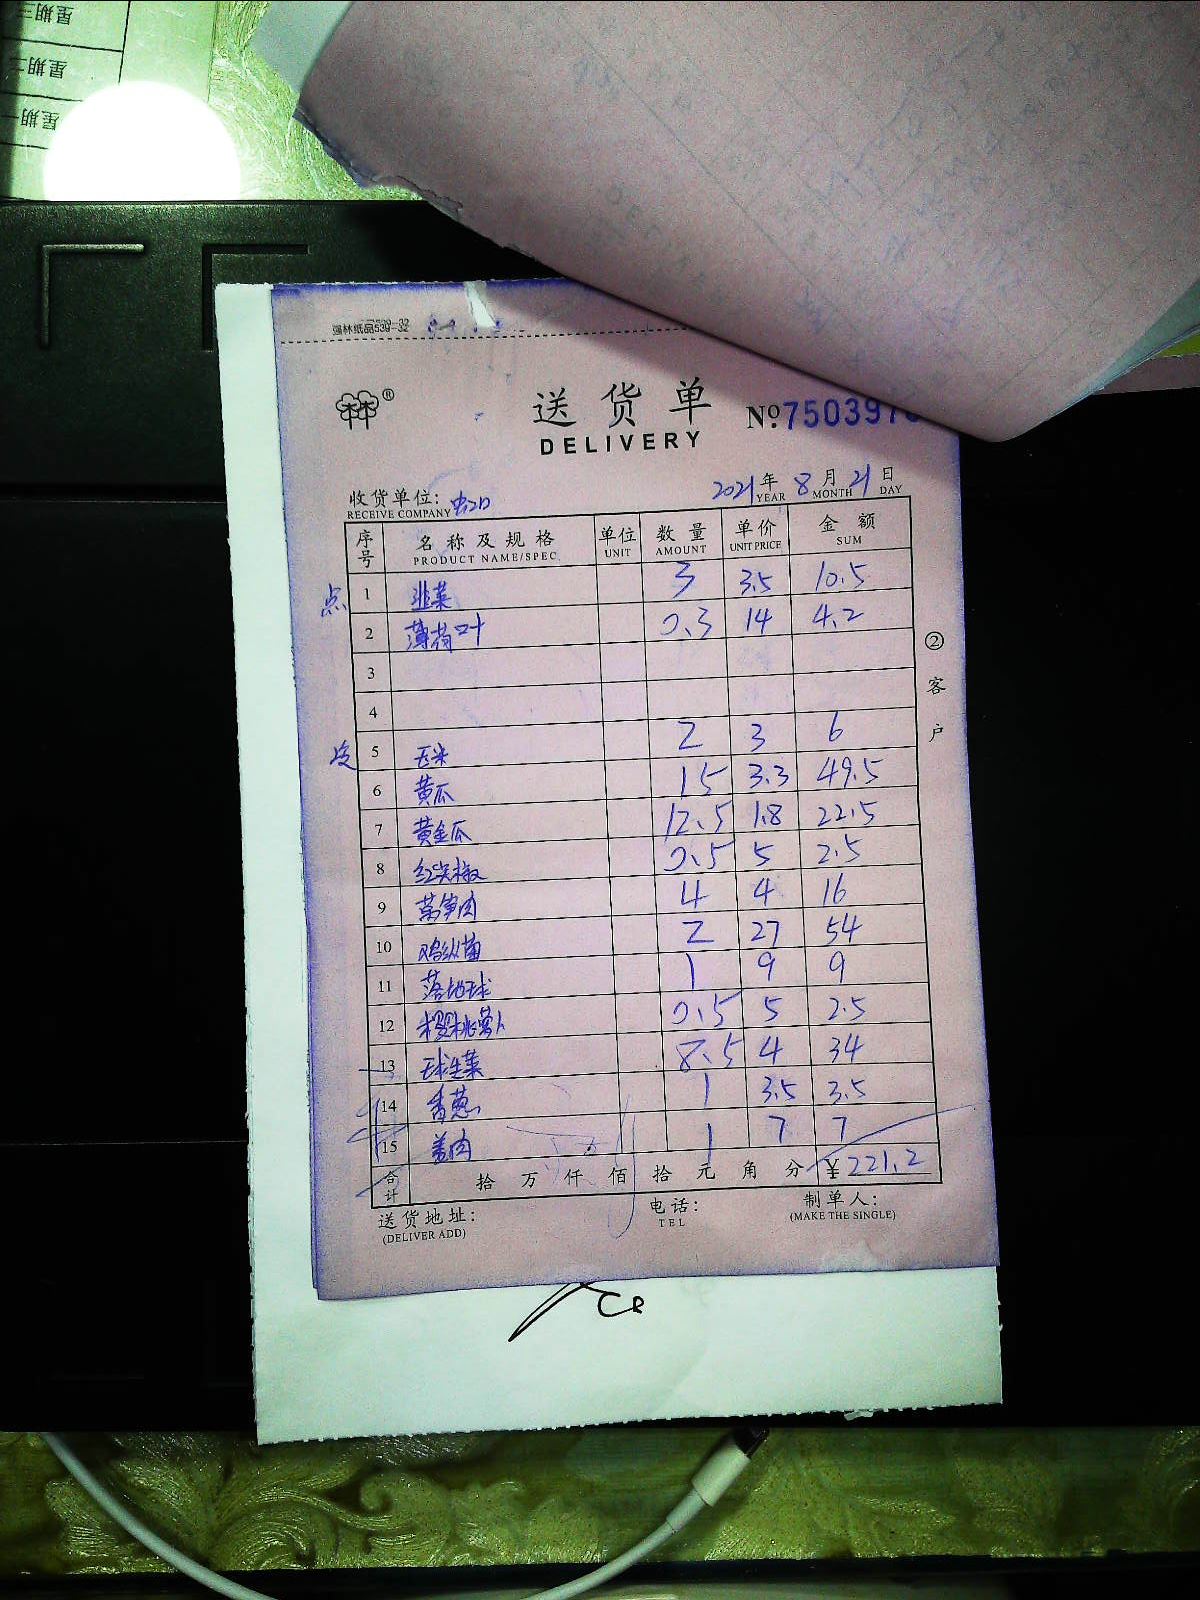 星期三
星期二
星期一
强林纸品539-32
林®
送货单
DELIVERY
No:750397
收货单位: 虫口
RECEIVE COMPANY
2021年 8月 21日
YEAR MONTH DAY
序号 名称及规格 单位 数量 单价 金额
PRODUCT NAME/SPEC UNIT AMOUNT UNIT PRICE SUM
点 1 韭菜 3 3.5 10.5
2 薄荷叶 0.3 14 4.2
3
4
5 玉米 2 3 6
6 黄瓜 15 3.3 49.5
7 黄金瓜 12.5 1.8 22.5
8 红尖椒 0.5 5 2.5
9 莴笋肉 4 4 16
10 鸡纵菌 2 27 54
11 落地球 1 9 9
12 樱桃萝卜 0.5 5 2.5
13 球生菜 8.5 4 34
14 香葱 1 3.5 3.5
15 姜肉 1 7 7
合计 拾 万 仟 佰 拾 元 角 分 ¥221.2
送货地址: 电话: 制单人:
(DELIVER ADD) TEL (MAKE THE SINGLE)
②客户